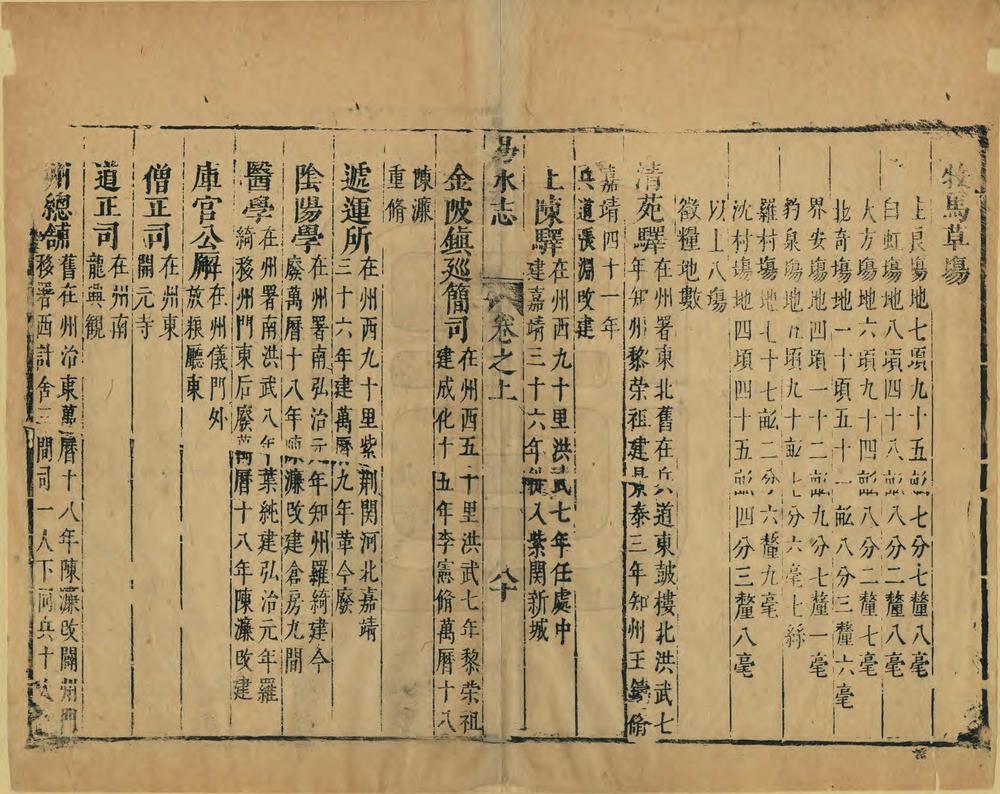 牧馬草塲
上良塲地七頃九十五畝七分七釐八毫
白虹塲地八頃四十八畝八分二釐八毫
大方塲地六頃九十四畝八分二釐七毫
北奇塲地一十頃五十一畝八分三釐六毫
界安塲地四頃一十二畝九分七釐一毫
豹泉塲地九頃九十畝七分六毫七絲
羅村塲地七十七畝二分六釐九毫
沈村塲地四頃四十五畝四分三釐八毫
以上八塲
徵糧地數
清苑驛在州署東北舊在兵道東鼓樓北洪武七
年知州黎荣祖建景泰三年知州王鑄脩
嘉靖四十一年
兵道張淵改建
上陳驛在州西九十里洪武七年任處中
建嘉靖三十六年徙入紫関新城
易水志
卷之上
八十
金陂鎮廵簡司在州西五十里洪武七年黎荣祖
建成化十五年李憲脩萬曆十八
陳濂
重脩
遞運所在州西九十里紫荆関河北嘉靖
三十六年建萬曆九年革今廢
陰陽學在州署南弘治元年知州羅綺建今
廢萬曆十八年陳濂改建倉房九間
醫學在州署南洪武八年葉純建弘治元年羅
綺移州門東后廢萬曆十八年陳濂改建
庫官公廨在州儀門外
放粮廳東
僧正司在州東
開元寺
道正司在州南
龍興観
州總舖舊在州治東萬曆十八年陳濂改闢州門
移署西計舍三間司一人下司兵十